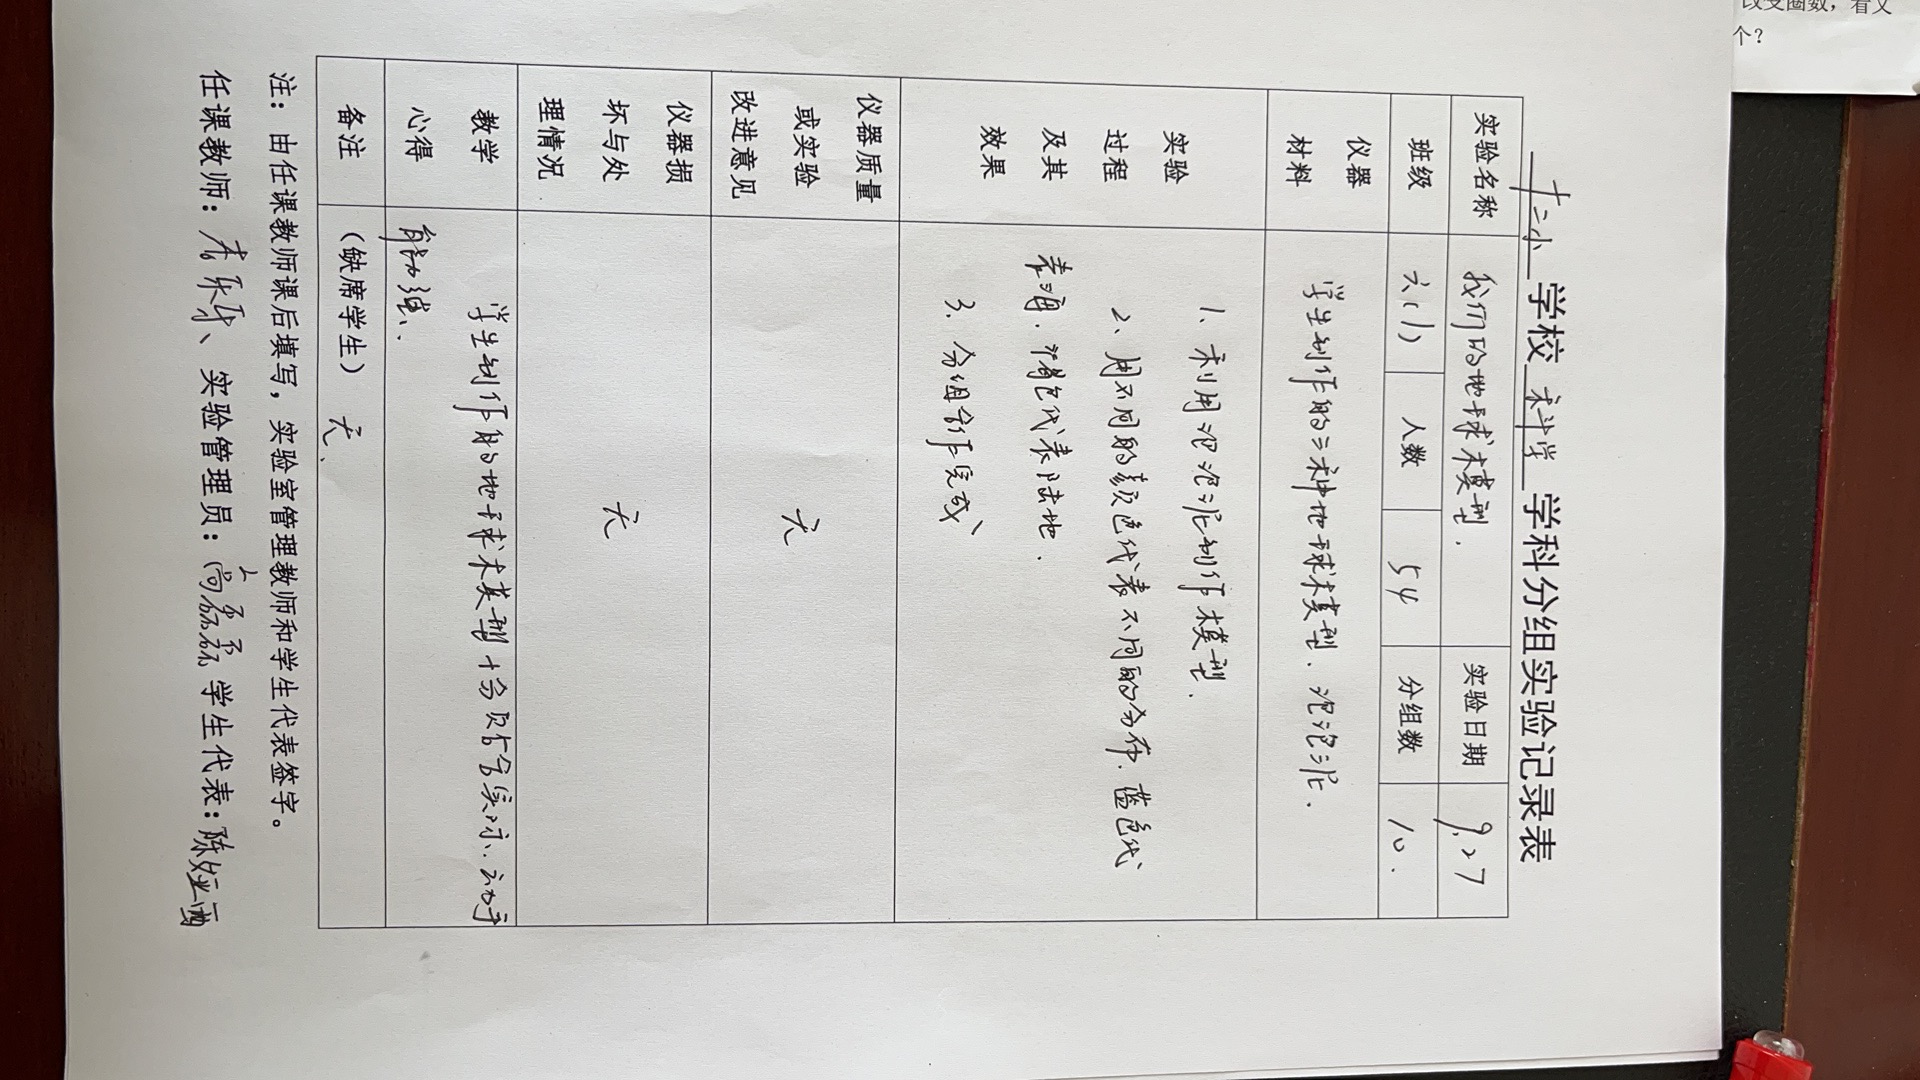 十二小 学校 科学 学科分组实验记录表
实验名称 我们的地球模型. 实验日期 9.27
班级 六(1) 人数 54 分组数 10.
仪器
材料
学生制作的三种地球模型、泡泡泥.
实验
过程
及其
效果
1、利用泡泡泥制作模型.
2、用不同的颜色代表不同的分布.蓝色代
表海.黄色代表陆地.
3、分组合作完成、
仪器质量
或实验
改进意见
无
仪器损
坏与处
理情况
无
教学
心得
学生制作的地球模型十分贴合实际、动手
能力强、
备注 (缺席学生) 无、
注：由任课教师课后填写，实验室管理教师和学生代表签字。
任课教师： 、实验管理员： 学生代表：陈
改变圈数，看又
个？